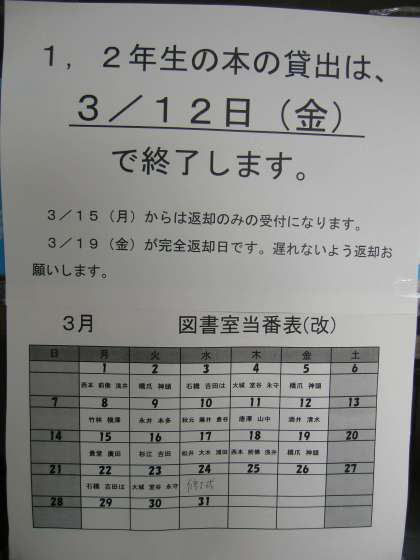 １，２年生の本の貸出は、
３／１２日（金）
で終了します。
３／１５（月）からは返却のみの受付になります。
３／１９（金）が完全返却日です。遅れないよう返却お
願いします。
３月 図書室当番表(改)
日 月 火 水 木 金 土
1 2 3 4 5 6
西本 前橋 浅井 橋爪 神頭 石橋 吉田は 大城 室谷 永守 橋爪 神頭
7 8 9 10 11 12 13
竹林 横澤 永井 本多 秋元 藤井 唐澤 山中 酒井 清水
14 15 16 17 18 19 20
廣田 杉江 吉田 松井 大木 浦田 西本 前橋 浅井 橋爪 神頭
21 22 23 24 25 26 27
石橋 吉田は 大城 室谷 永守
28 29 30 31